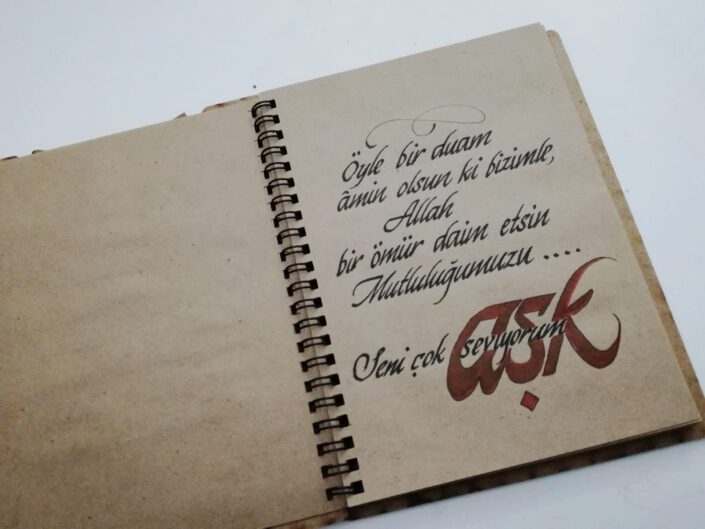 Öyle bir duam
âmin olsun ki bizimle,
Allah
bir ömür daim etsin
Mutluluğumuzu ....
Seni çok seviyorum
aşk